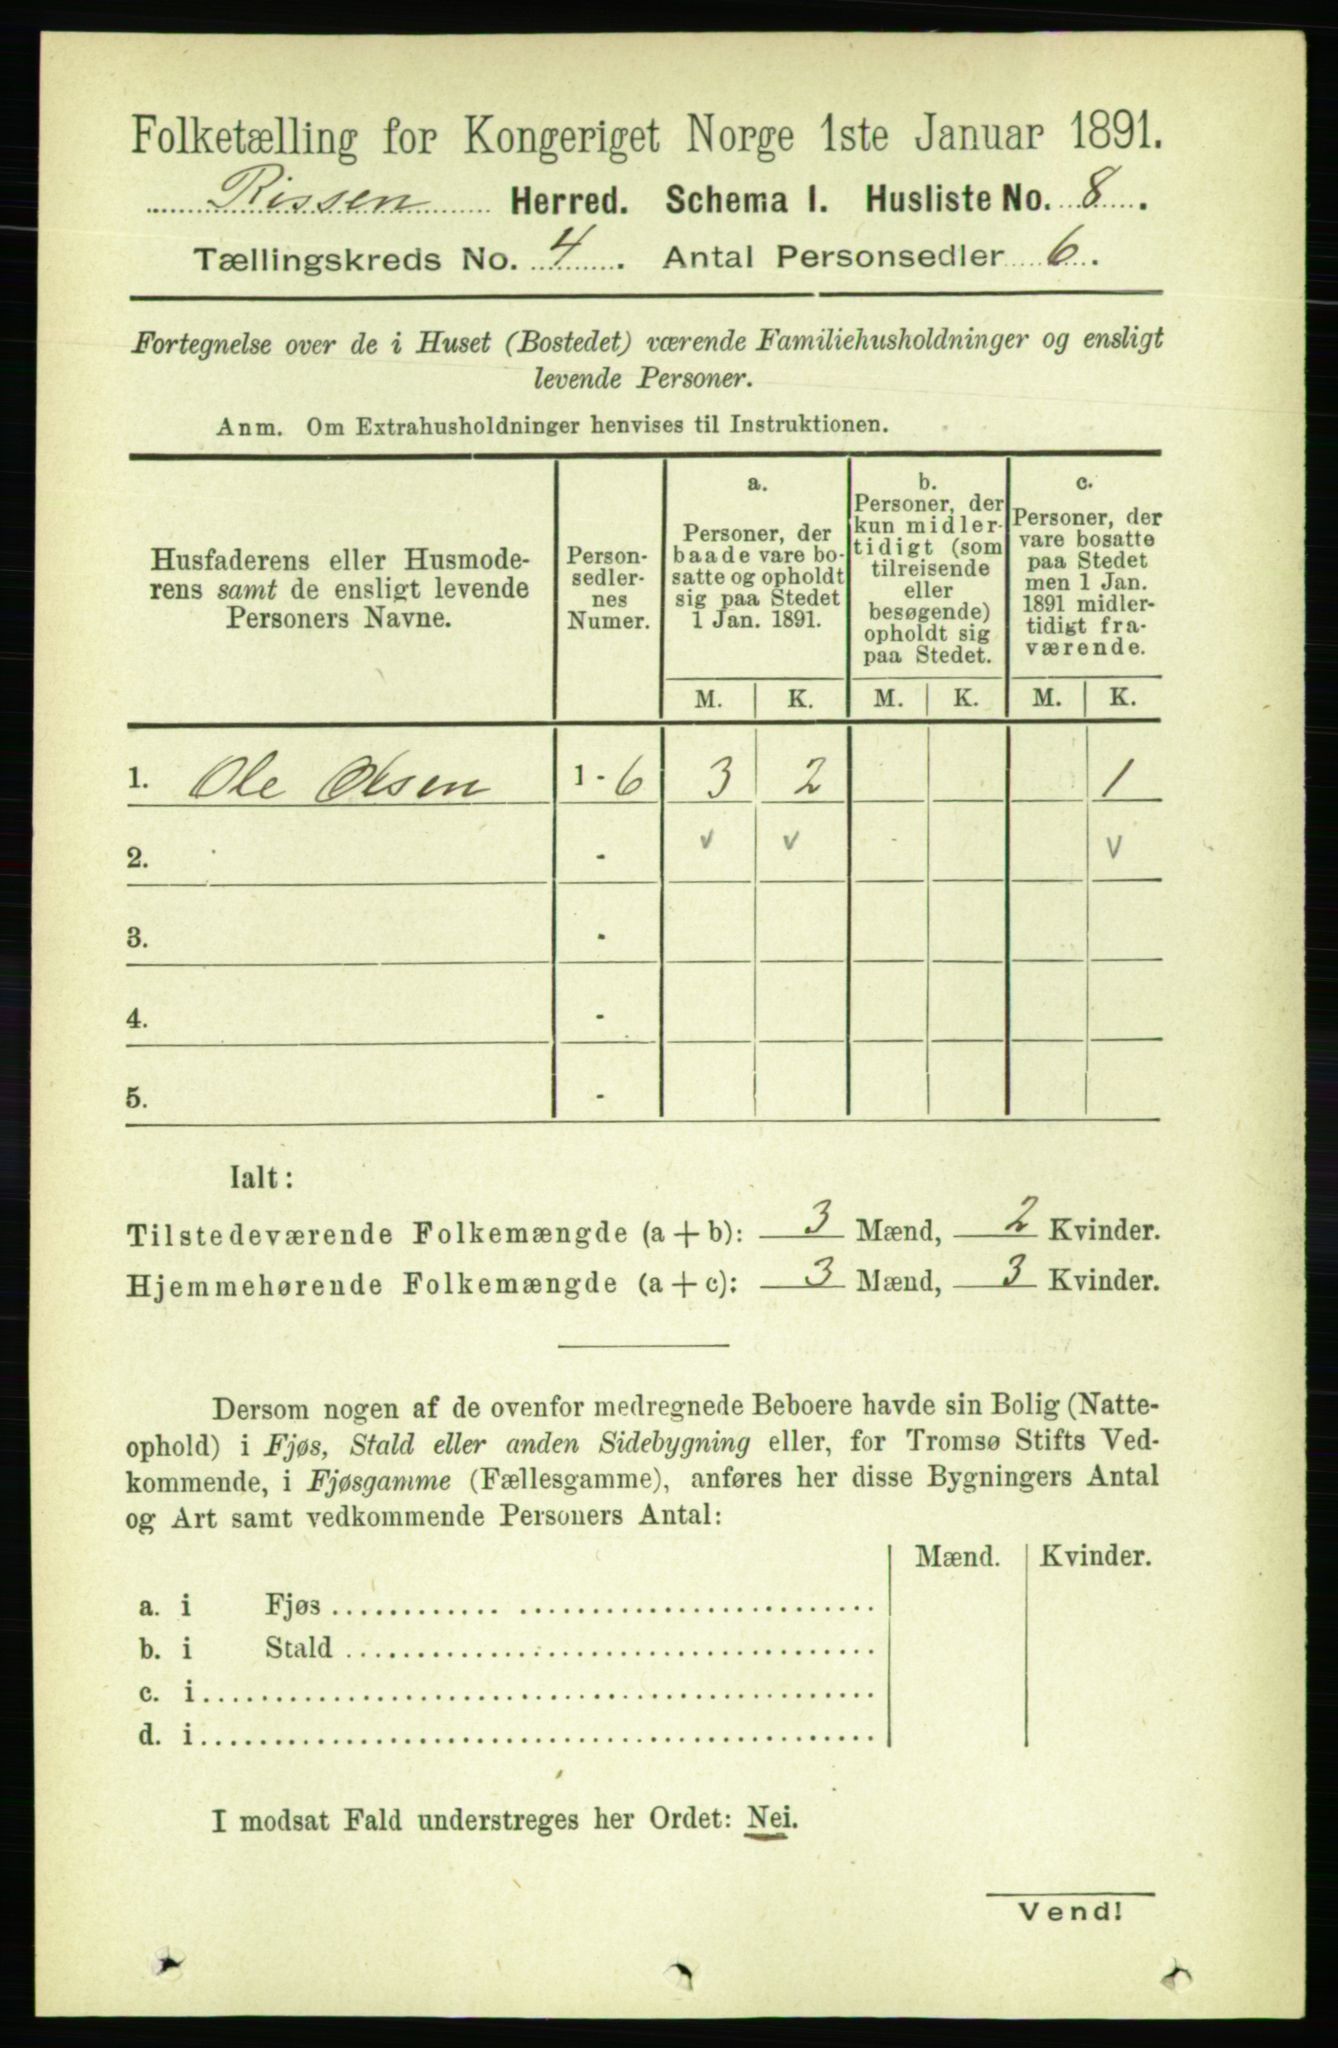 Folketælling for Kongeriget Norge 1ste Januar 1891.
Rissen Herred. Schema I. Husliste No. 8.
Tællingskreds No. 4. Antal Personsedler 6.
Fortegnelse over de i Huset (Bostedet) værende Familiehusholdninger og ensligt
levende Personer.
Anm. Om Extrahusholdninger henvises til Instruktionen.
Husfaderens eller Husmode-
rens samt de ensligt levende
Personers Navne.
Person-
sedler-
nes
Numer.
a.
Personer, der
baade vare bo-
satte og opholdt
sig paa Stedet
1 Jan. 1891.
b.
Personer, der
kun midler-
tidigt (som
tilreisende
eller
besøgende)
opholdt sig
paa Stedet.
c.
Personer, der
vare bosatte
paa Stedet
men 1 Jan.
1891 midler-
tidigt fra-
værende.
M. K. M. K. M. K.
1. Ole Olsen 1 - 6 3 2 1
2. - v v v
3. -
4. -
5. -
Ialt:
Tilstedeværende Folkemængde (a + b): 3 Mænd, 2 Kvinder.
Hjemmehørende Folkemængde (a + c): 3 Mænd, 3 Kvinder.
Dersom nogen af de ovenfor medregnede Beboere havde sin Bolig (Natte-
ophold) i Fjøs, Stald eller anden Sidebygning eller, for Tromsø Stifts Ved-
kommende, i Fjøsgamme (Fællesgamme), anføres her disse Bygningers Antal
og Art samt vedkommende Personers Antal:
Mænd. Kvinder.
a. i Fjøs
b. i Stald
c. i
d. i
I modsat Fald understreges her Ordet: Nei.
Vend!